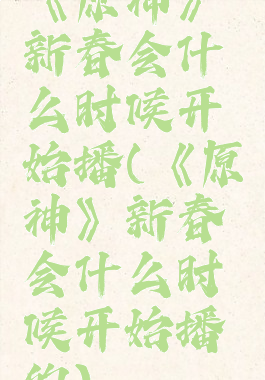 《原神》
新春会什
么时候开
始播(《原
神》新春
会什么时
候开始播
的)